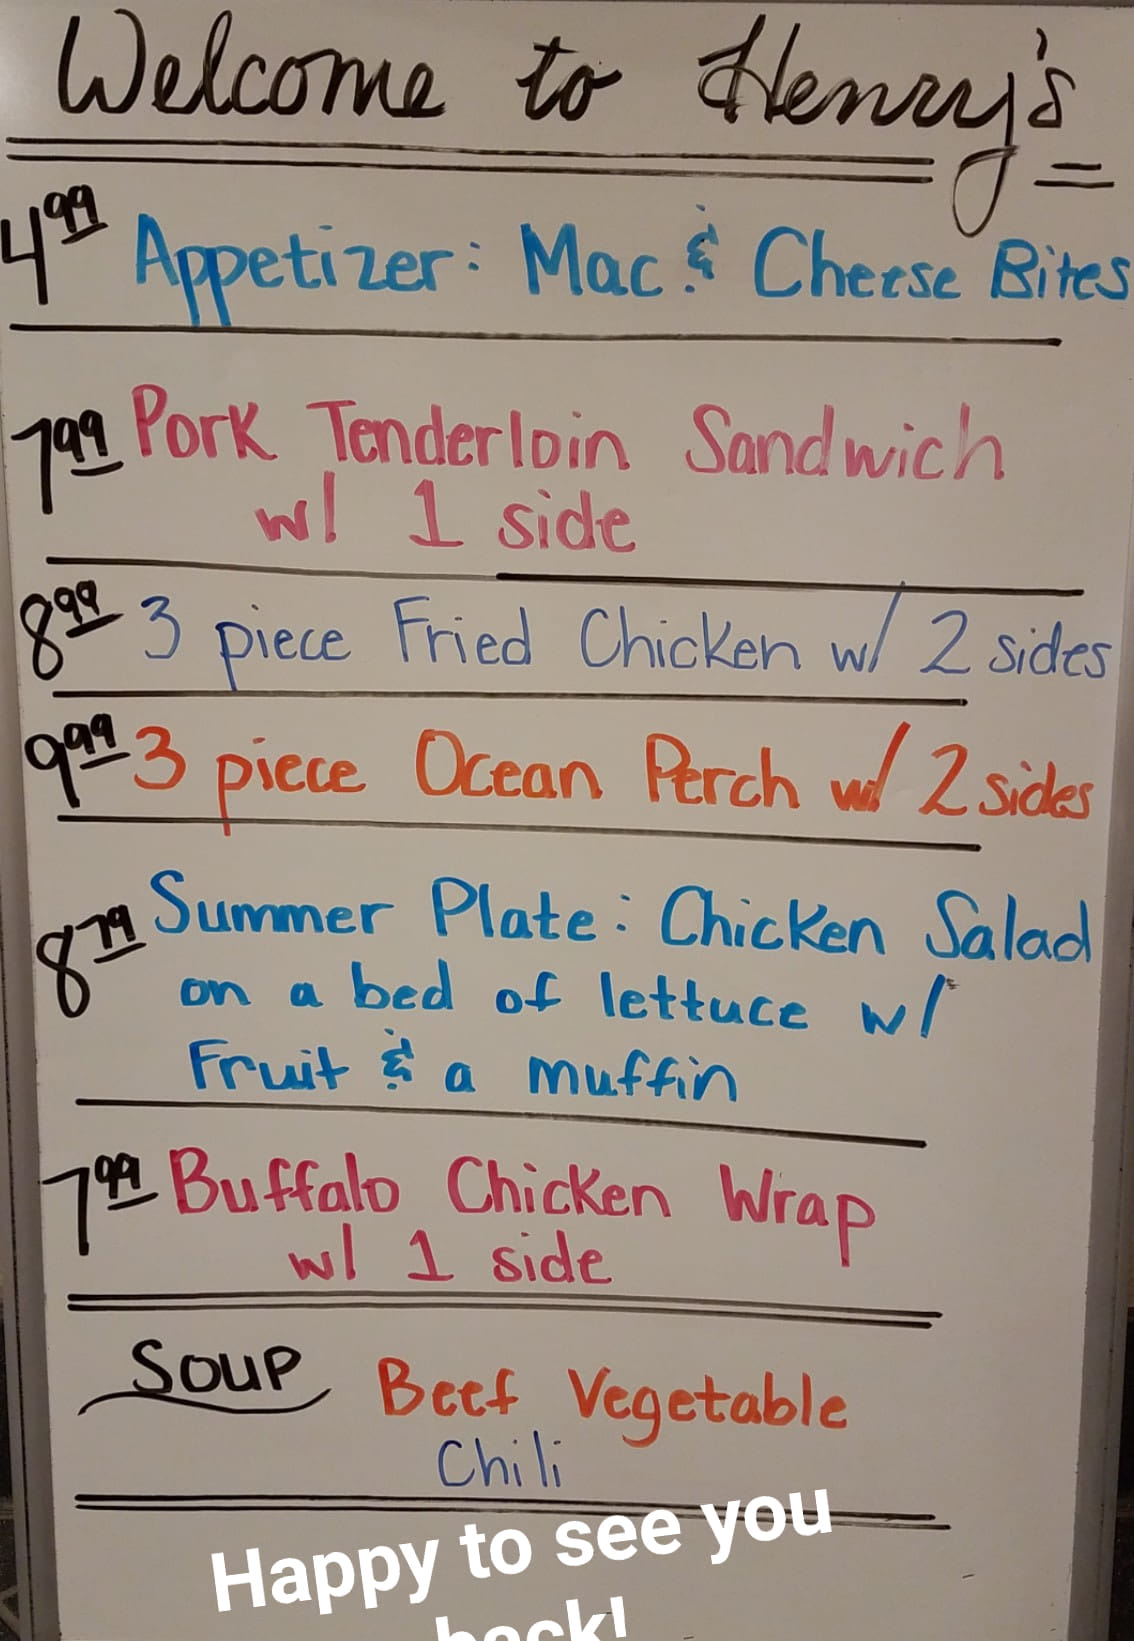 Welcome to Henry's
4.99 Appetizer: Mac & Cheese Bites
7.99 Pork Tenderloin Sandwich
w/ 1 side
8.99 3 piece Fried Chicken w/ 2 sides
9.99 3 piece Ocean Perch w/ 2 sides
8.79 Summer Plate: Chicken Salad
on a bed of lettuce w/
Fruit & a muffin
7.99 Buffalo Chicken Wrap
w/ 1 side
Soup Beef Vegetable
Chili
Happy to see you
back!